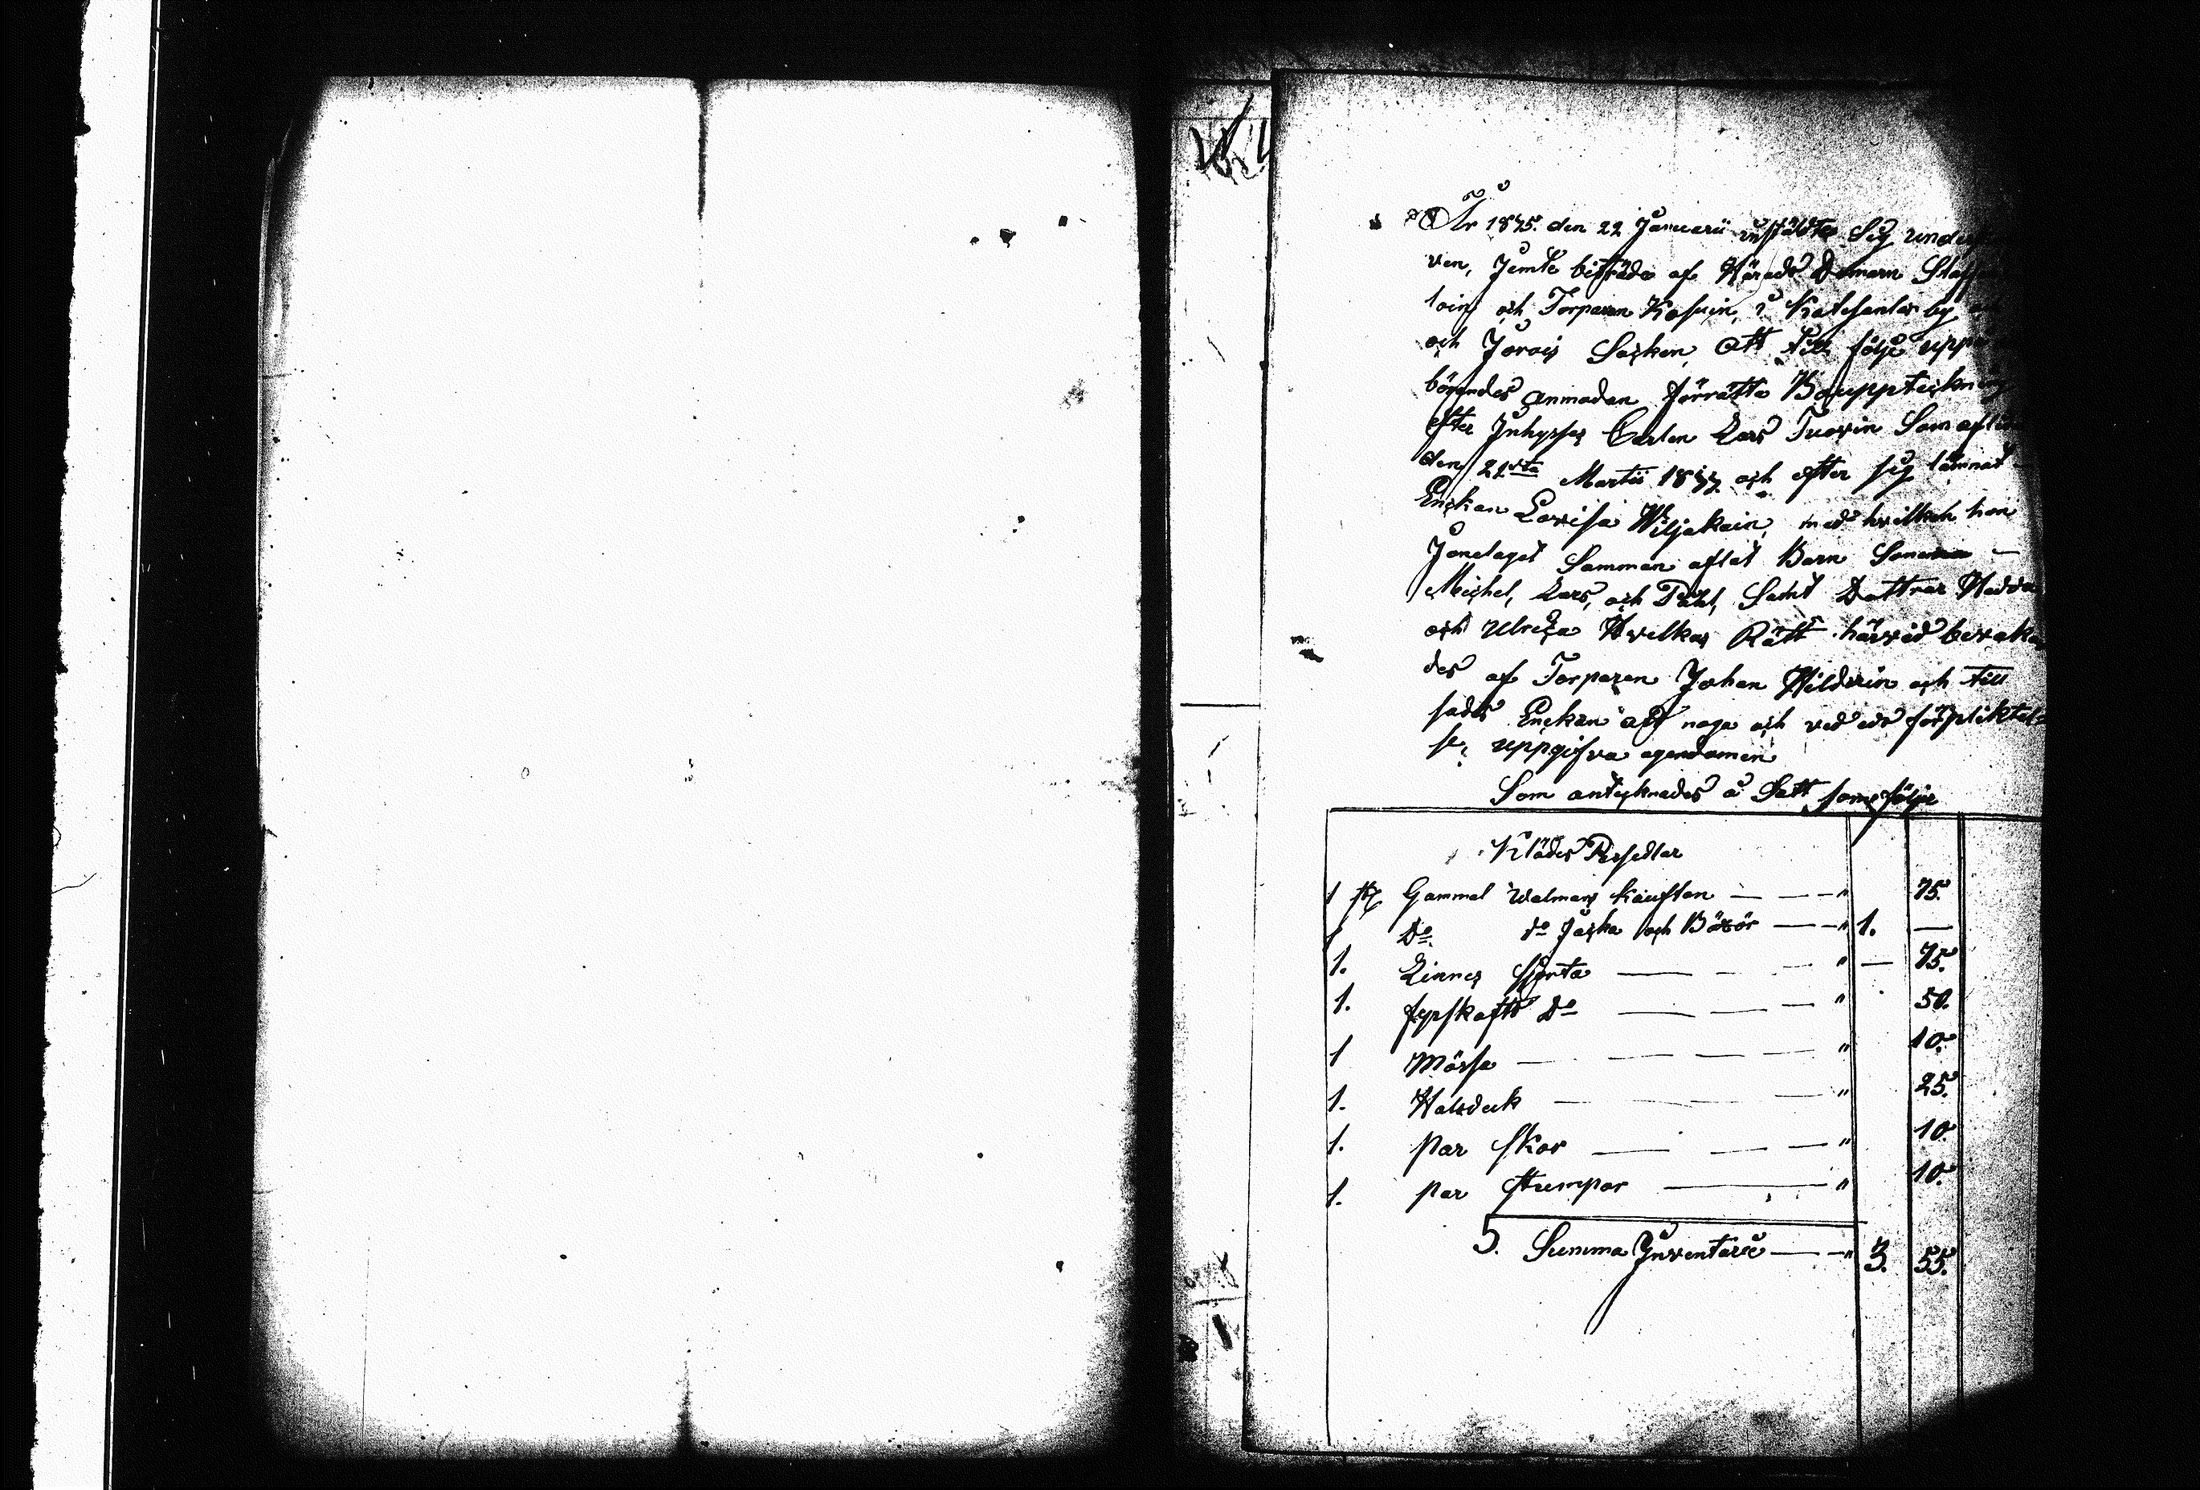 År 1875. den 22 Januarii instäldte Sig under
ven, Jemte biträde af Härads Domarn
och Torparen Kosuin, i Katesantos by
och Jorois Socken, Att till följe
börendes anmodan förrätta Bouppteckning
efter Inhyses Carlen Lars Tuovin Som afled
den 21sta Martii 1877 och efter sig lämnat
Enckan Lovisa Wiljakain, med hvilken han
Jonelaget Samman aflat Barn Sonerna —
Michel, Lars, och Påhl, Samt Dottrar Hedda
och Ulrica Hvilkas Rätt härvid bevaka
des af Torparen Johan Hildvein och till
sades Enckan att noga och ved eds förpliktel
se, uppgifva egendomen
Som antecknades å Sätt som följer
Klädes Persedlar
1 st Gammal Walmars Kauftan — — — " 75.
1 Do do Jacka och Böxor — — " 1. —
1. Linnes Skjorta — — — " — 75.
1. fyrskafts Do — — — " 50.
1 Mössa — — — — " 10.
1. Halsduk — — — — " 25.
1. par Skor — — — " 10.
1. par Strumpor — — " 10.
S. Summa Inventarii — — " 3. 55.